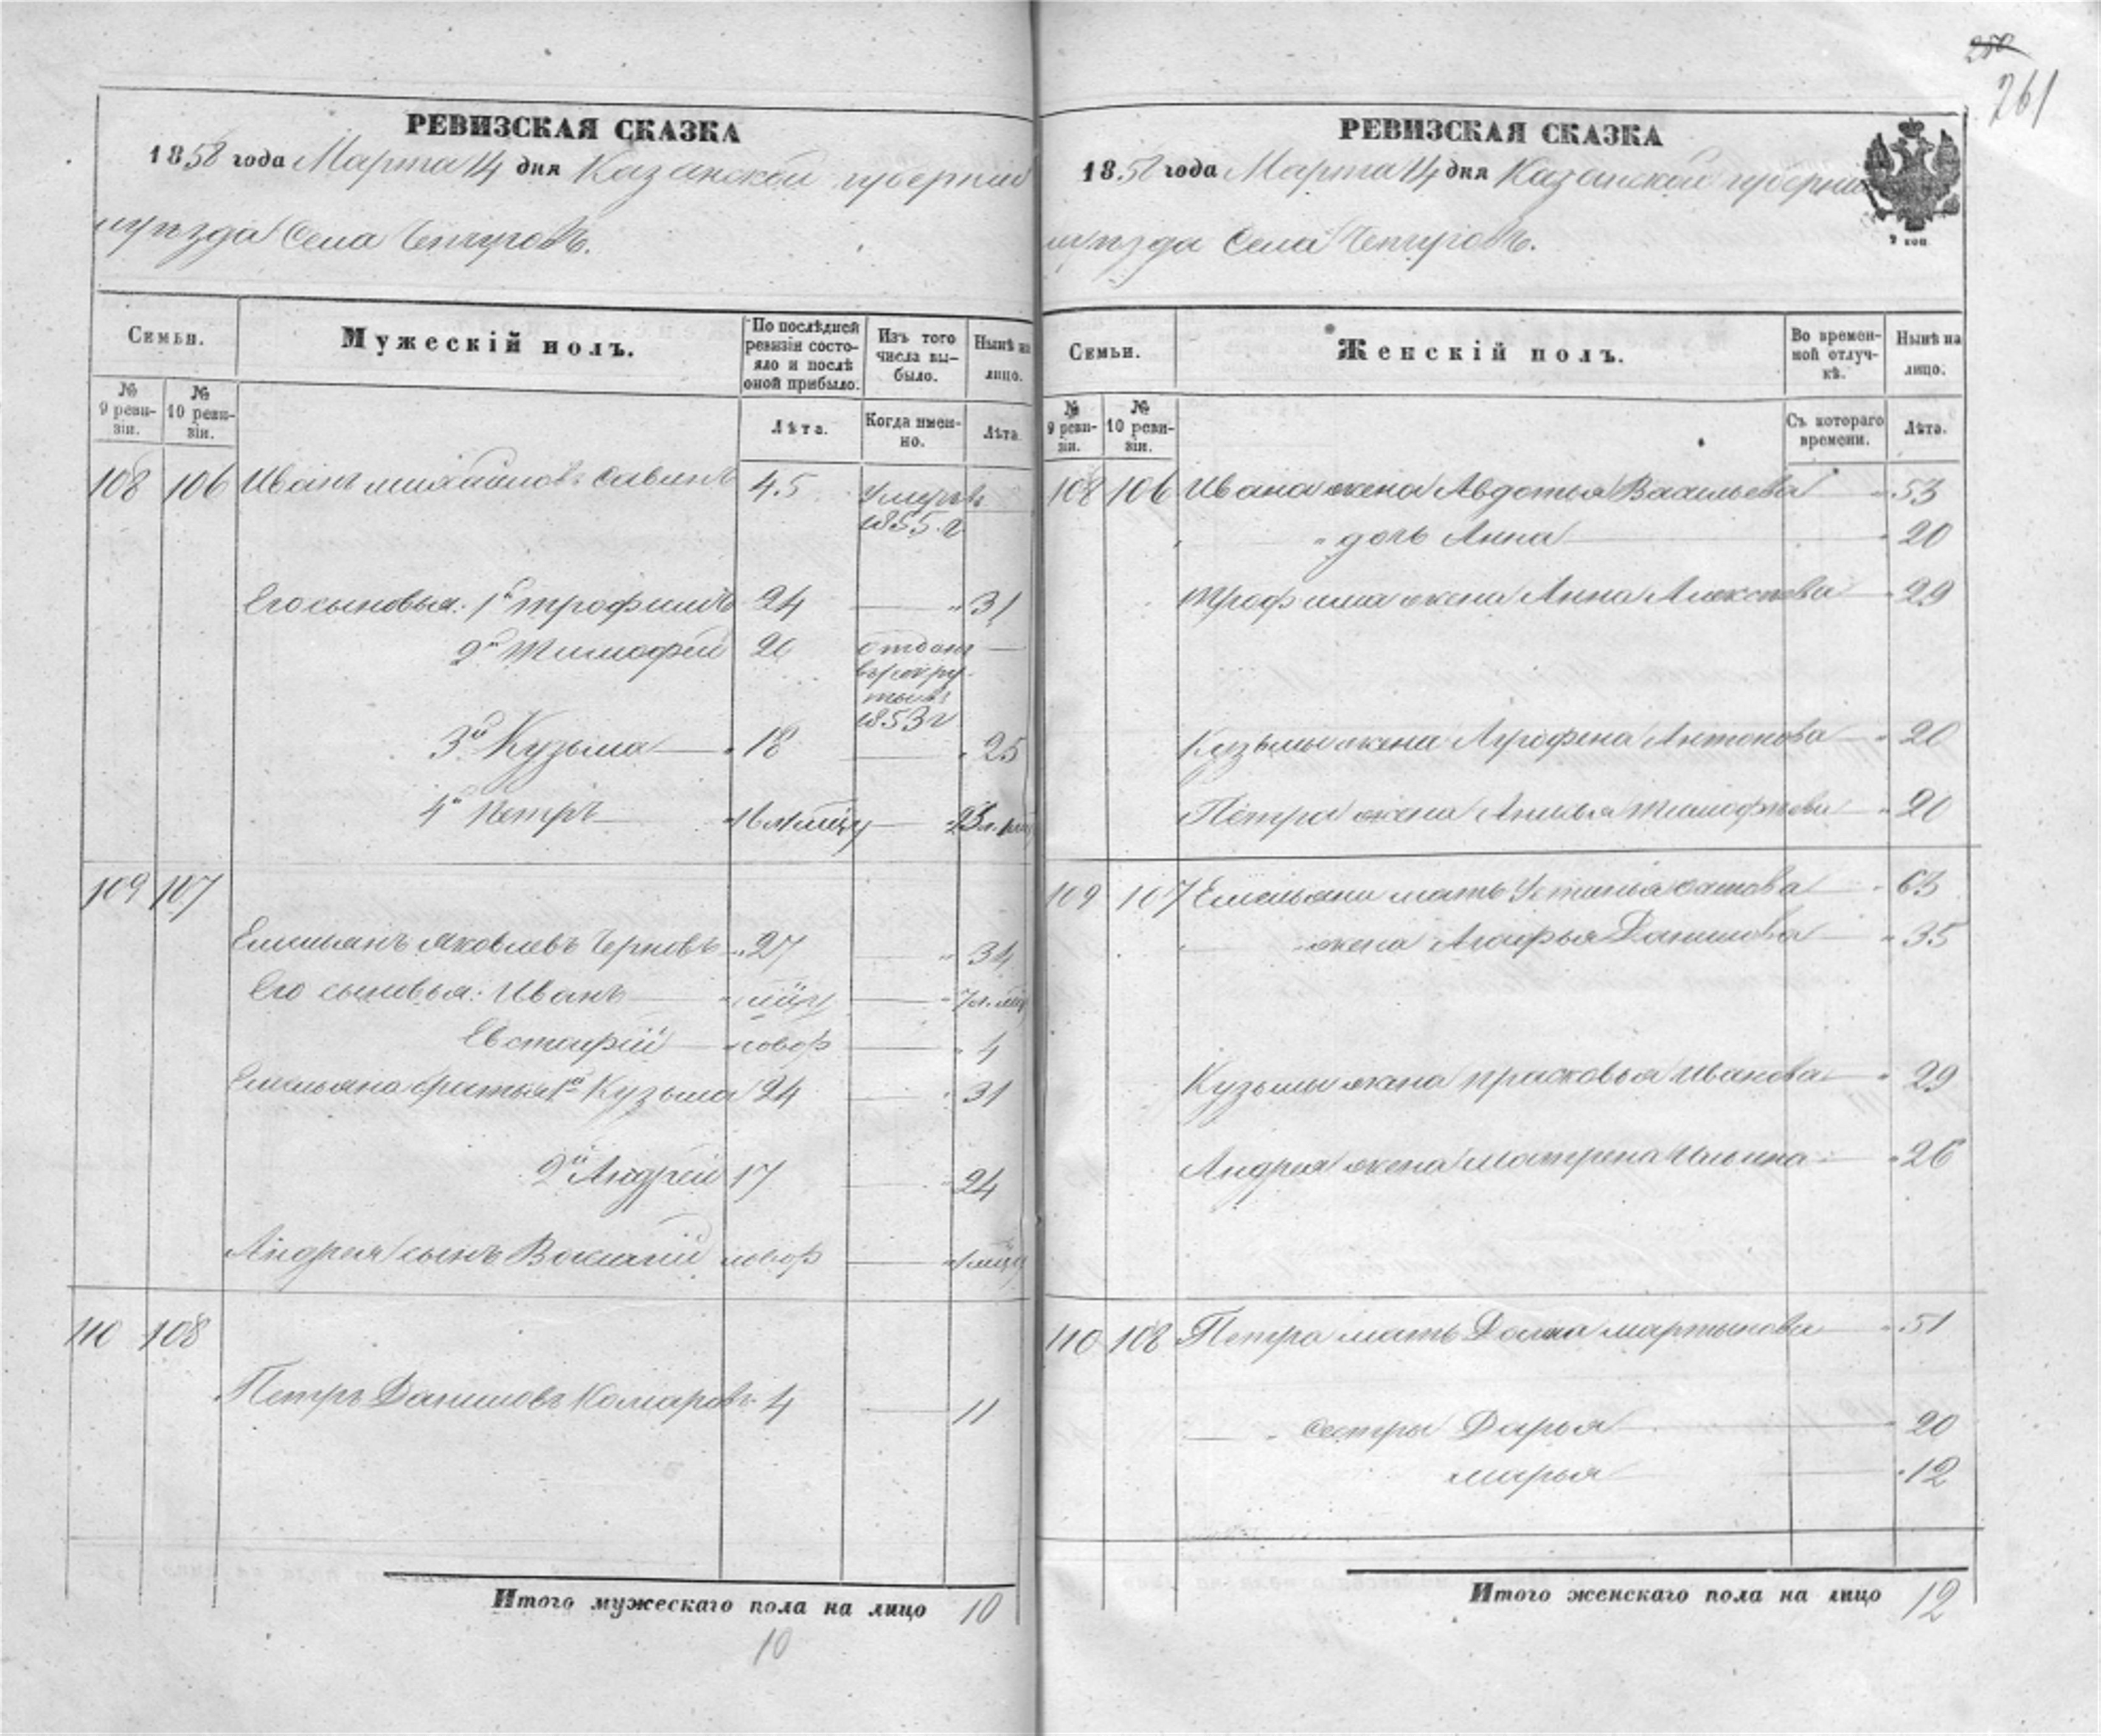 250
261
РЕВИЗСКАЯ СКАЗКА
1858 года Марта 14 дня Казанской губернии
уѣзда Села
Семьи.
Мужескій полъ.
По послѣдней ревизіи состояло и послѣ оной прибыло.
Изъ того числа выбыло.
Нынѣ на лицо.
№ 9 ревизіи.
№ 10 ревизіи.
Лѣта.
Когда именно.
Лѣта.
108 106 Иванъ Михайловъ Савинъ 45 умеръ 1855 г
Его сыновья: 1й Трофимъ 24 — 31
2й Тимофей 20 отданъ въ рекруты въ 1853 г —
3й Кузьма 18 — 25
4й Петръ
109 107
Емельянъ Яковлевъ Черновъ 27 — 34
Его сыновья: Иванъ
Евстафій новор — 4
Емельяна братья 1й Кузьма 24 — 31
2й Андрей 17 — 24
Андрея сынъ Василій новор —
110 108
Петръ Даниловъ Комаровъ 4 — 11
Итого мужескаго пола на лицо 10
10
РЕВИЗСКАЯ СКАЗКА
1858 года Марта 14 дня Казанской губерніи
уѣзда Села
Семьи.
Женскій полъ.
Во временной отлучкѣ.
Нынѣ на лицо.
№ 9 ревизіи.
№ 10 ревизіи.
Съ котораго времени.
Лѣта.
108 106 Ивана жена Авдотья Васильева 53
" дочь Анна 20
Трофима жена Анна Алексѣева 29
Кузьмы жена Агрофена Антонова 20
Петра жена Тимофѣева 20
109 107 Емельяна мать Устинья 63
жена Агафья Данилова 35
Кузьмы жена Прасковья Иванова 29
Андрея жена Матрена Ильина 26
110 108 Петра мать Домна Мартынова 51
" сестры Дарья 20
Марья 12
Итого женскаго пола на лицо 12